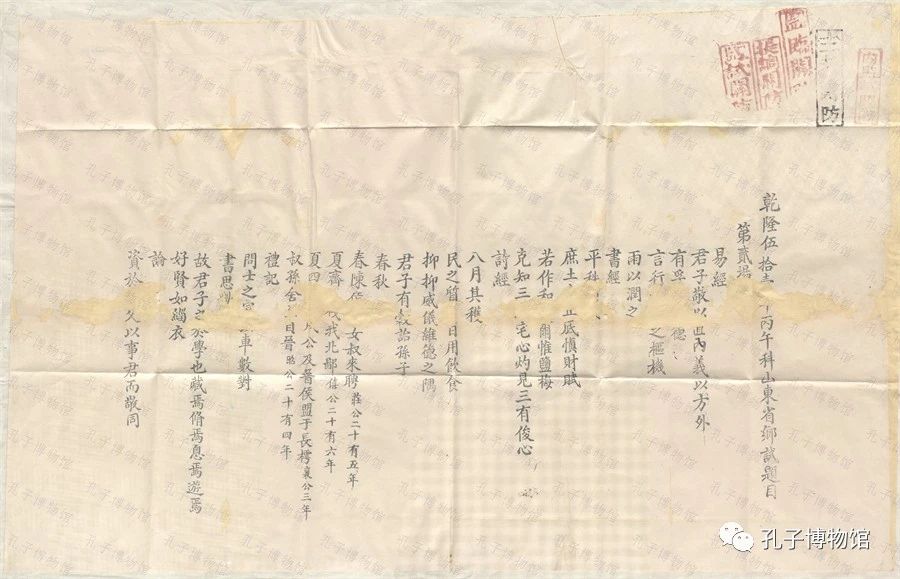 乾隆伍拾丙午科山東省鄉試題目
第貳場
易經
君子敬以直內義以方外
有孚德
言行之樞機
雨以潤之
書經
平
庶土正底慎財賦
若作和爾惟鹽梅
克知三宅心灼見三有俊心
詩經
八月其穫
民之質日用飲食
抑抑威儀維德之隅
君子有穀詒孫子
春秋
春陳女叔來聘莊公二十有五年
夏齊伐我北鄙僖公二十有六年
夏四公及晉侯盟于長樗襄公三年
叔孫舍自晉昭公二十有四年
禮記
問士之富車數對
書思
故君子之於學也藏焉脩焉息焉遊焉
好賢如緇衣
論
資於父以事君而敬同
孔子博物馆